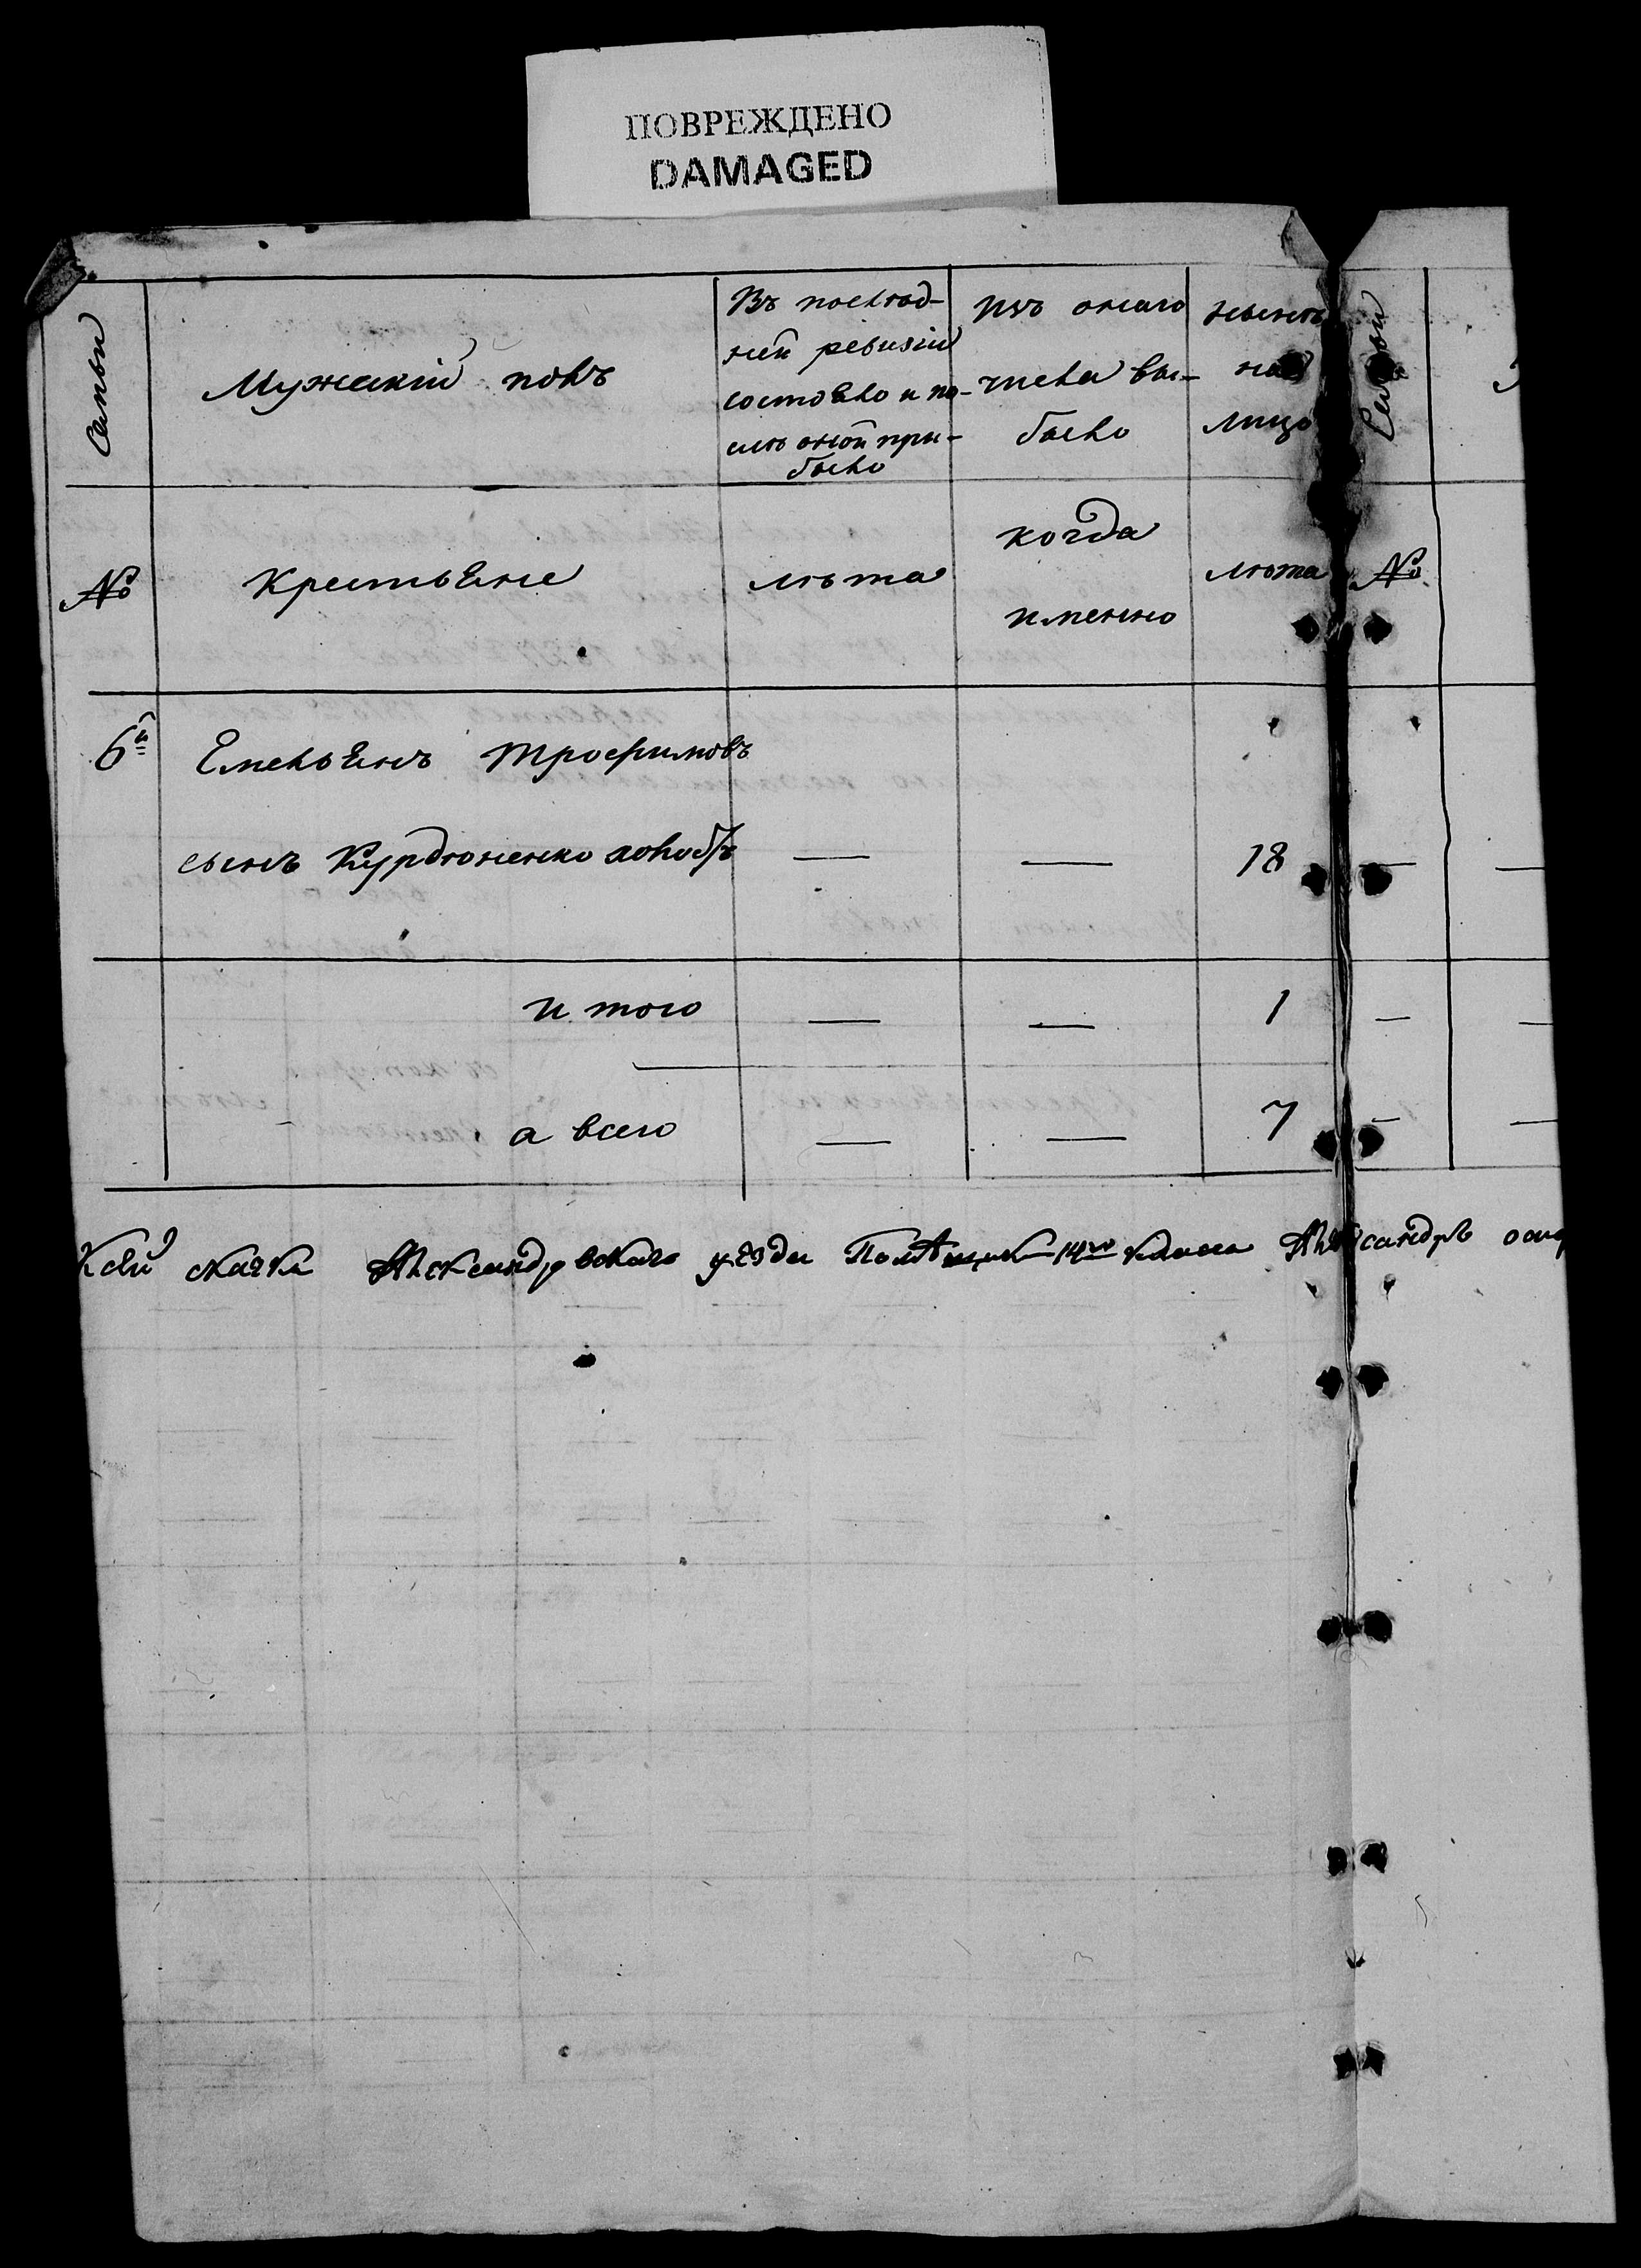 ПОВРЕЖДЕНО
DAMAGED
Семьи
Мужескій полъ
Въ послѣд-
ней ревизіи
состояло и по-
слѣ оной при-
было
изъ онаго
числа вы-
было
нынѣ
на
лицо
Семьи
№
Крестьяне
лѣта
когда
именно
лѣта
№
6й
Емельянъ Трофимовъ
сынъ Курдюненко холостъ — — 18 — —
и того — — 1 — —
а всего — — 7 — —
сказка Александровскаго уѣзда Помѣщикъ 14го класса Александръ